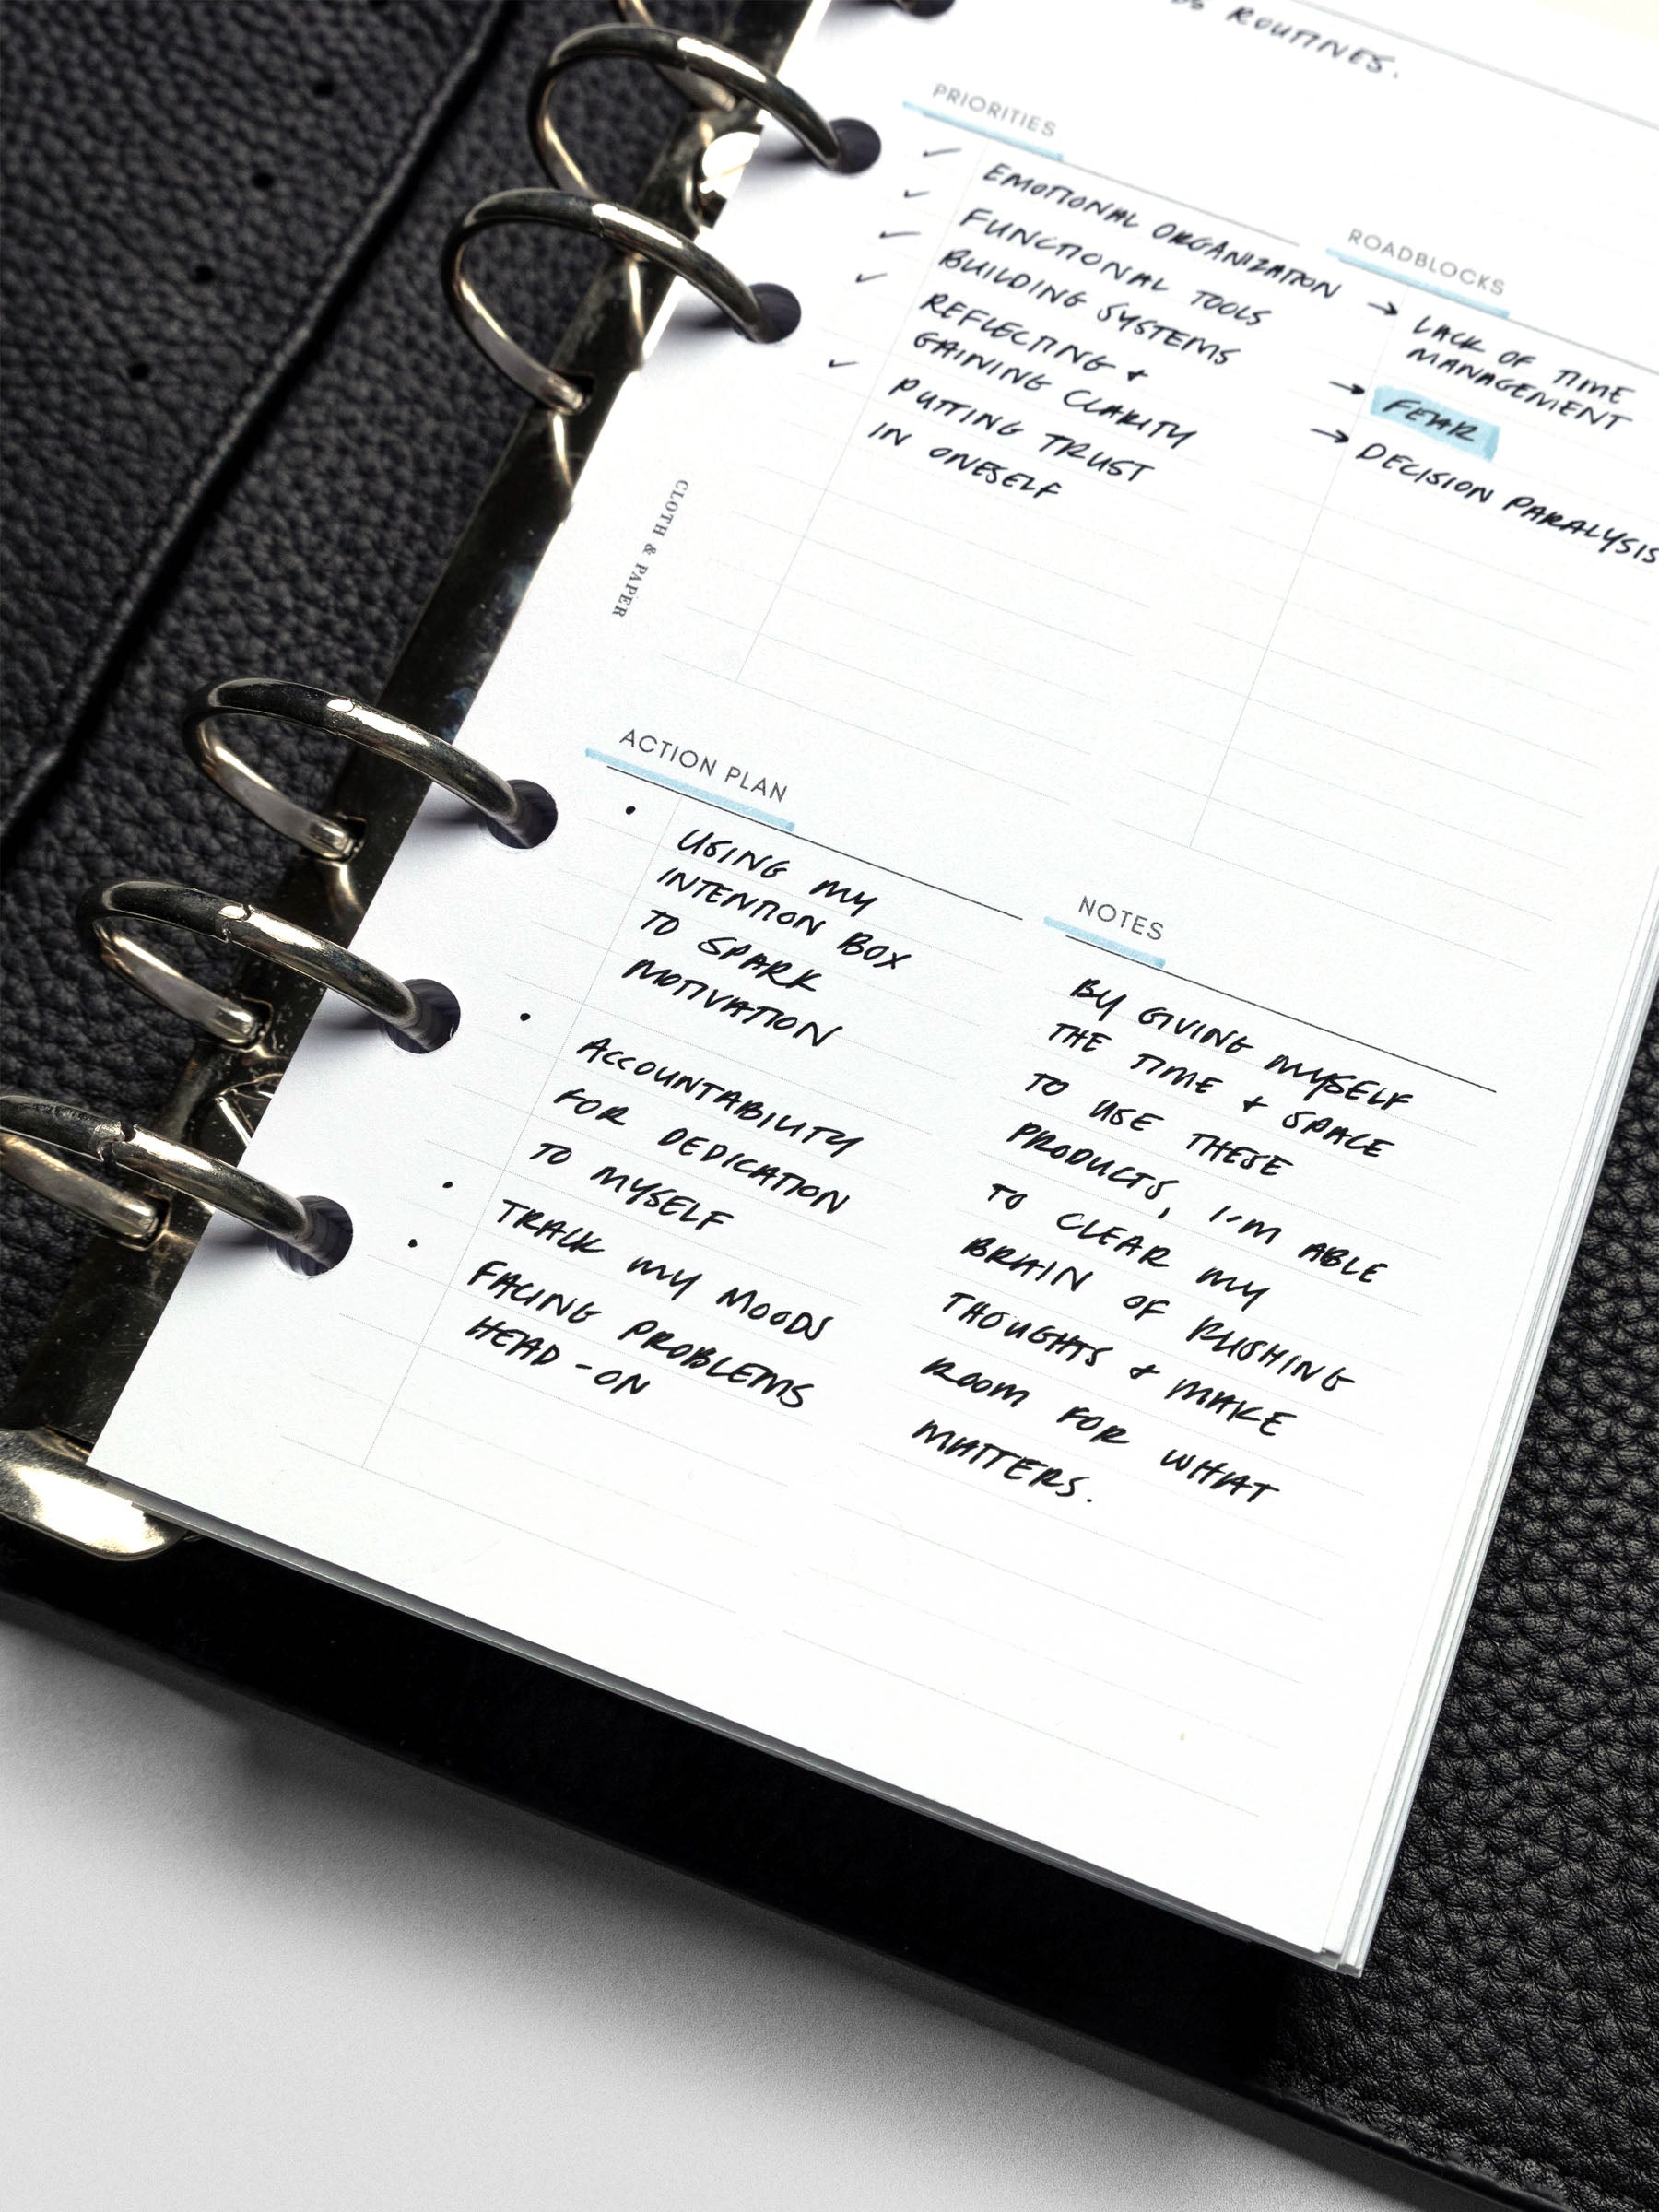 ROUTINES.
PRIORITIES
✓ EMOTIONAL ORGANIZATION
✓ FUNCTIONAL TOOLS
✓ BUILDING SYSTEMS
✓ REFLECTING +
GAINING CLARITY
✓ PUTTING TRUST
IN ONESELF
ROADBLOCKS
→ LACK OF TIME
MANAGEMENT
→ FEAR
→ DECISION PARALYSIS
CLOTH & PAPER
ACTION PLAN
• USING MY
INTENTION BOX
TO SPARK
MOTIVATION
• ACCOUNTABILITY
FOR DEDICATION
TO MYSELF
• TRACK MY MOODS
• FACING PROBLEMS
HEAD-ON
NOTES
BY GIVING MYSELF
THE TIME + SPACE
TO USE THESE
PRODUCTS, I'M ABLE
TO CLEAR MY
BRAIN OF RUSHING
THOUGHTS + MAKE
ROOM FOR WHAT
MATTERS.